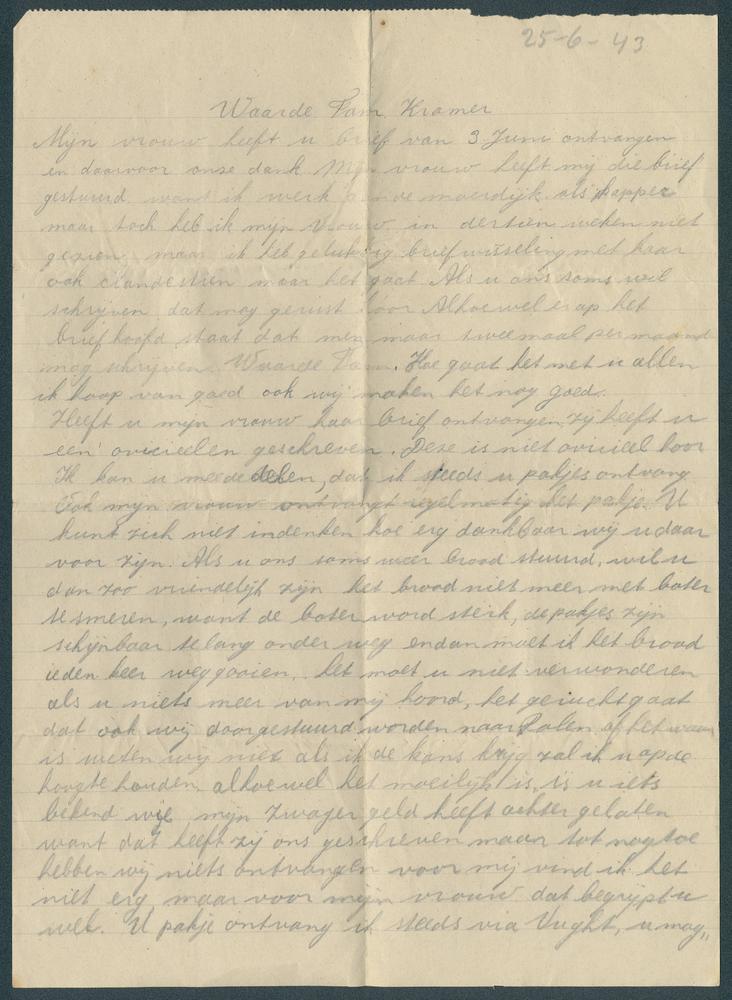 25-6-43
Waarde Fam Kramer
Mijn vrouw heeft u brief van 3 Juni ontvangen
en daarvoor onze dank Mijn vrouw heeft mij die brief
gestuurd want ik werk aan de moerdijk als
maar toch heb ik mijn vrouw in dertien weken niet
gezien, maar ik heb gelukkig briefwisseling met haar
ook clandestien maar het gaat Als u ons soms wil
schrijven dat mag gerust hoor Alhoewel er op het
briefhoofd staat dat men maar tweemaal per maand
mag schrijven. Waarde Fam. Hoe gaat het met u allen
ik hoop van goed ook wij maken het nog goed.
Heeft u mijn vrouw haar brief ontvangen zij heeft u
een oviciëelen geschreven. Deze is niet oviciëel hoor
Ik kan u meededelen, dat ik steeds u pakjes ontvang
Ook mijn vrouw ontvangt regelmatig het pakje. U
kunt zich niet indenken hoe erg dankbaar wij u daar
voor zijn. Als u ons soms weer brood stuurd, wil u
dan zoo vriendelijk zijn het brood niet meer met boter
te smeren, want de boter word sterk, de pakjes zijn
schijnbaar te lang onder weg en dan moet ik het brood
ieden keer weggooien. het moet u niet verwonderen
als u niets meer van mij hoord, het geruchtgaat
dat ook wij doorgestuurd worden naar Polen of het waar
is weten wij niet als ik de kans krijg zal ik u op de
hoogte houden, alhoewel het moeilijk is, is u iets
bekend wie mijn zwager geld heeft achter gelaten
want dat heeft zij ons geschreven maar tot nog toe
hebben wij niets ontvangen voor mij vind ik het
niet erg maar voor mijn vrouw dat begrijpt u
wel. U pakje ontvang ik steeds via Vught, u mag,,